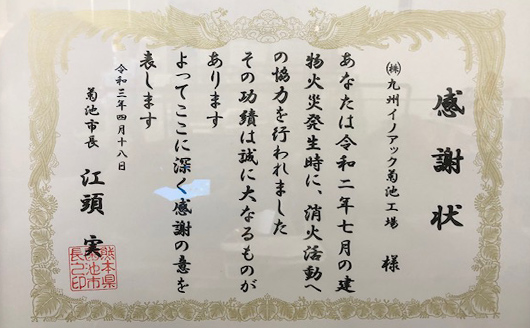 感謝状
㈱九州イノアック菊池工場 様
あなたは令和二年七月の建
物火災発生時に、消火活動へ
の協力を行われました
その功績は誠に大なるものが
あります
よってここに深く感謝の意を
表します
令和三年四月十八日
菊池市長 江頭 実
熊本県
菊池市
長之印